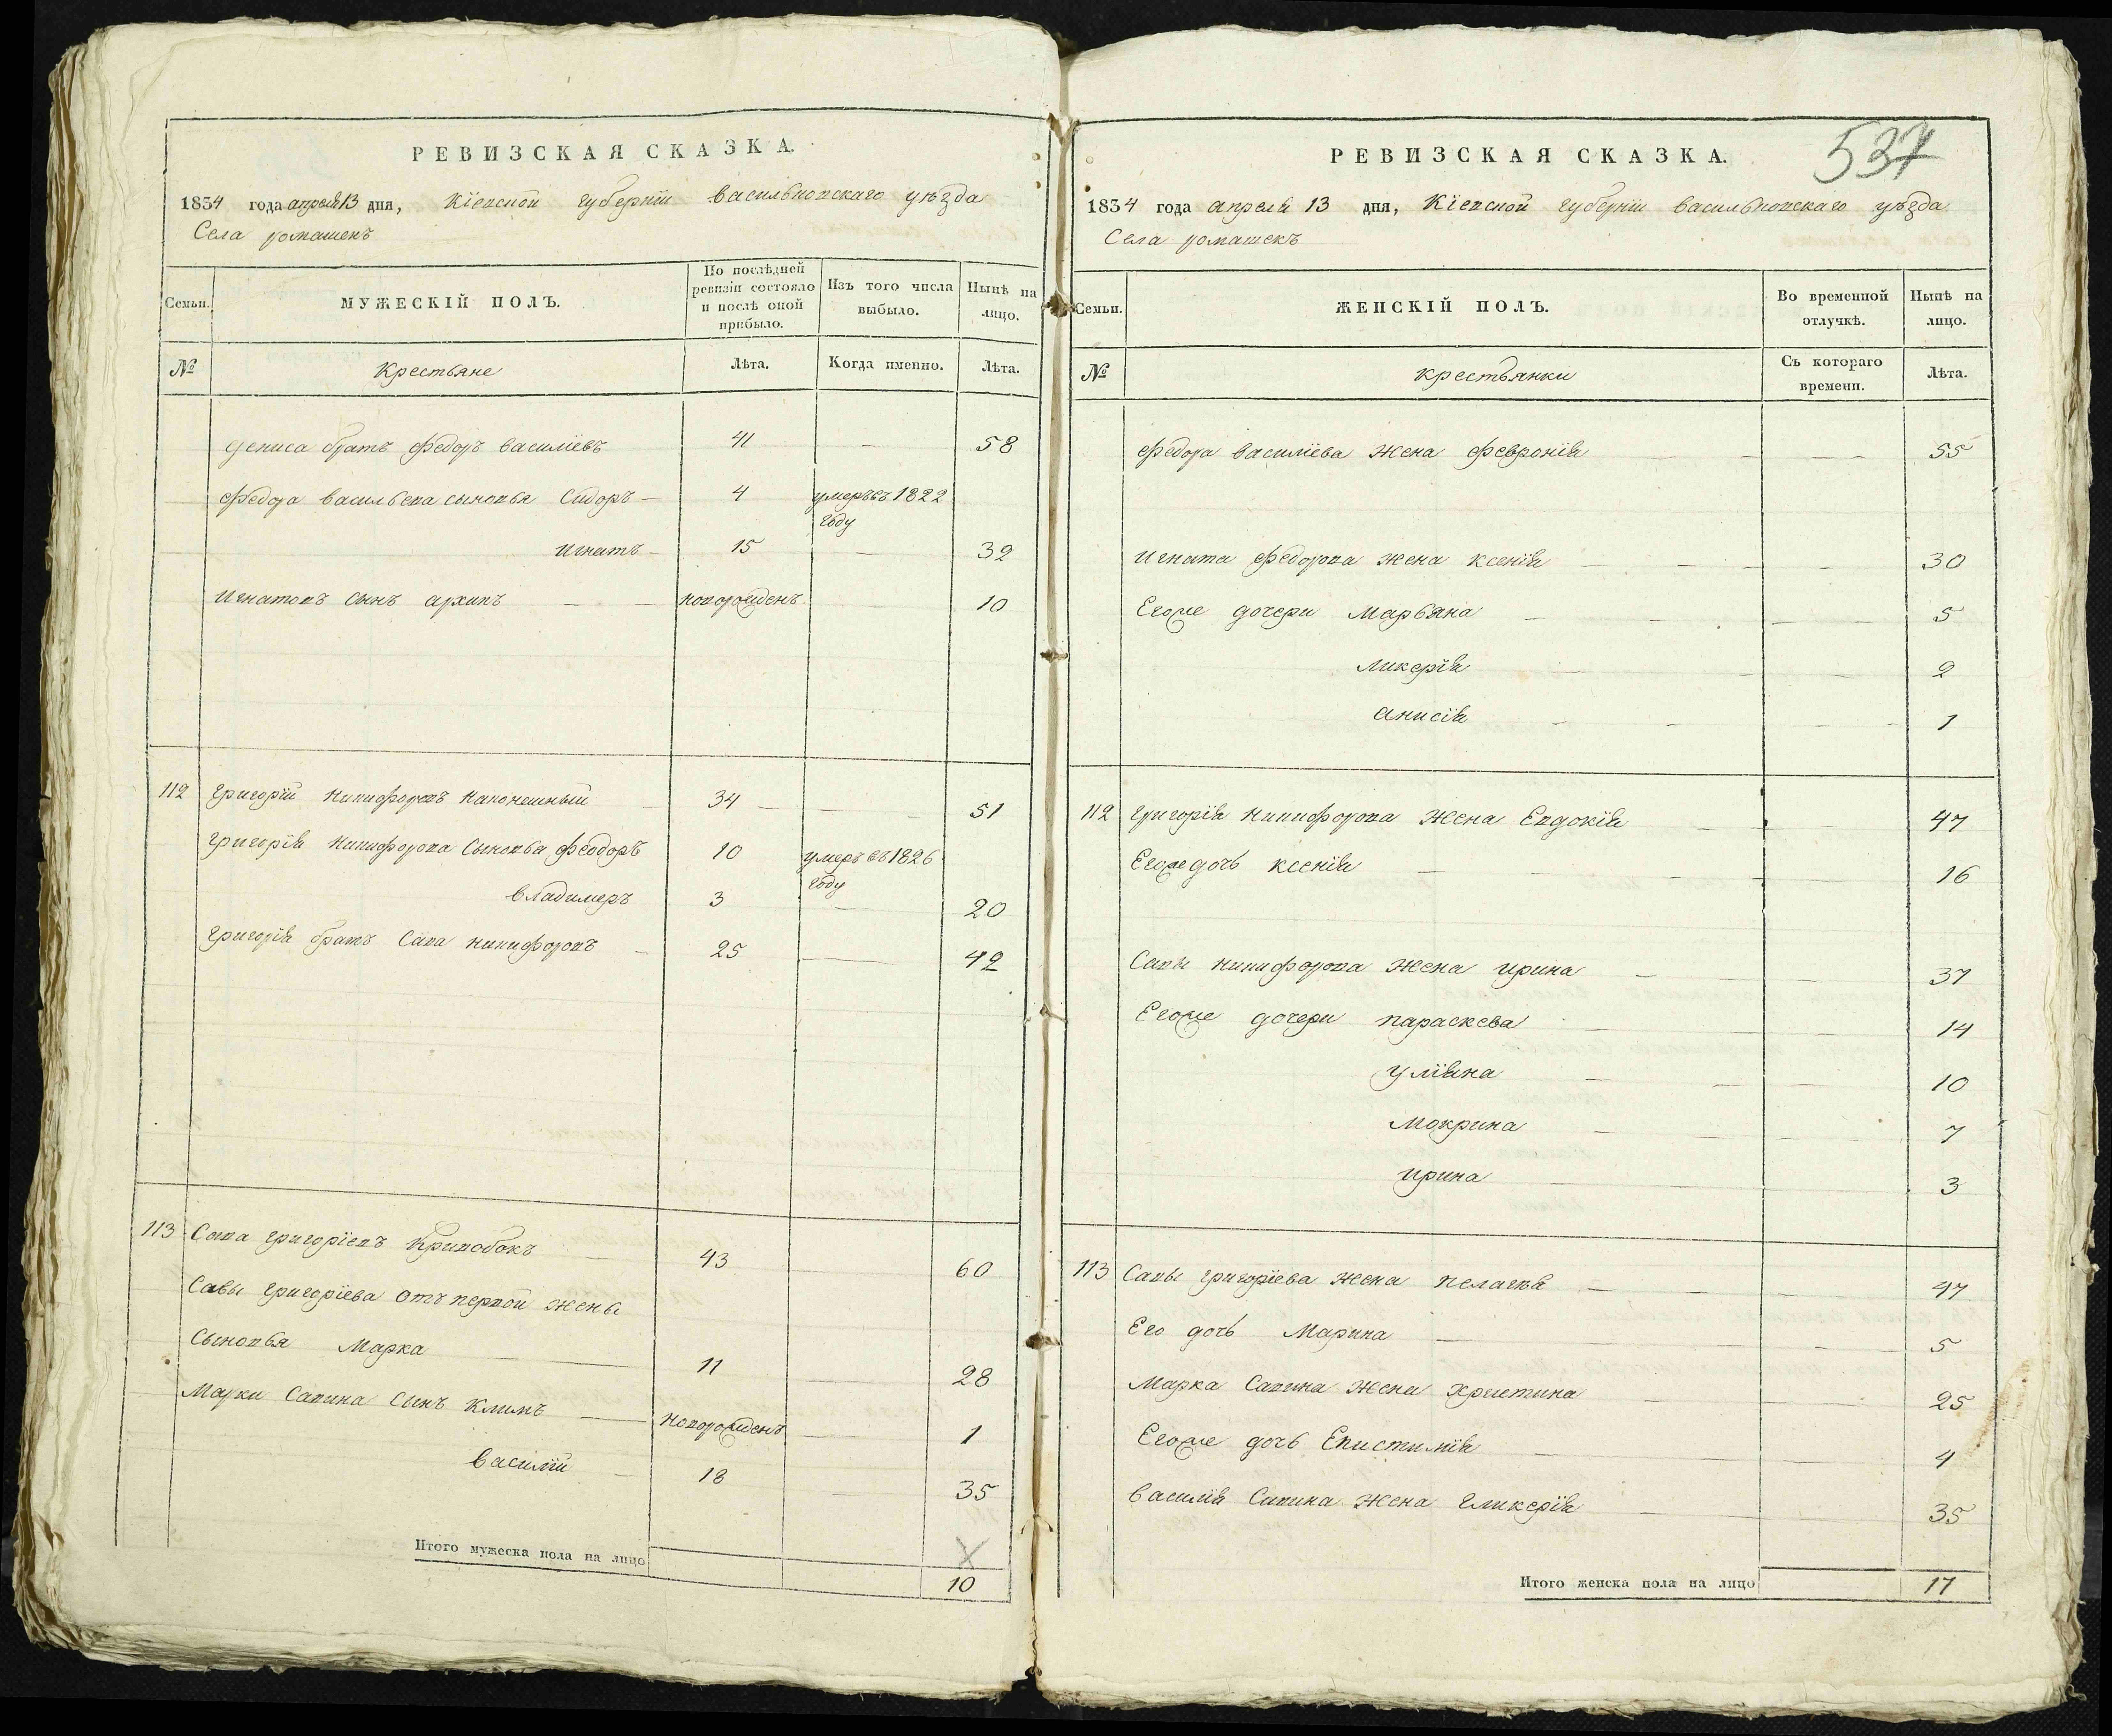 РЕВИЗСКАЯ СКАЗКА.
1834 года апреля 13 дня, Кіевской губерніи васильковскаго уѣзда
Села ромашекъ
Семьи.
МУЖЕСКІЙ ПОЛЪ.
По послѣдней ревизіи состояло и послѣ оной прибыло.
Изъ того числа выбыло.
Нынѣ на лицо.
№
Крестьяне
Лѣта.
Когда именно.
Лѣта.
Дениса братъ Федоръ василіевъ 41 — 58
Федора васильева сыновья Сидоръ — 4 умеръ въ 1822 году
Игнатъ — 15 — 32
Игнатовъ сынъ архипъ — — новорожденъ 10
112 Григорій Никифоровъ Наконешный 34 — 51
Григорія Никифорова Сыновья Феодоръ 10 умеръ въ 1826 году
владимеръ 3 — 20
Григорія братъ Сава никифоровъ — 25 — 42
113 Сава григоріевъ Кривобокъ — 43 — 60
Савы Григоріева отъ первой жены
Сыновья Марка — 11 28
Марки Савина Сынъ Климъ — новорожденъ — 1
василій — 18 — 35
Итого мужеска пола на лицо
10
РЕВИЗСКАЯ СКАЗКА.
537
1834 года апреля 13 дня, Кіевской губерніи васильковскаго уѣзда
Села ромашекъ
Семьи.
ЖЕНСКІЙ ПОЛЪ.
Во временной отлучкѣ.
Нынѣ на лицо.
№
крестьянки
Съ котораго времени.
Лѣта.
Федора василіева жена Февронія — — 55
Игната Федорова жена ксенія — — 30
Егоже дочери Марьяна — — 5
Ликерія — — 2
анисія — — 1
112 Григорія Никифорова жена Евдокія — — 47
Егоже дочь ксенія — — 16
Савы никифорова жена ирина — 37
Егоже дочери параскева — — 14
уліяна — — 10
Мокрина — — 7
ирина — 3
113 Савы григоріева жена пелагія — — 47
Его дочь Марина — — 5
Марка Савина жена христина — — 25
Егоже дочь Епистимія — — 4
василія Савина жена гликерія — — 35
Итого женска пола на лицо
17